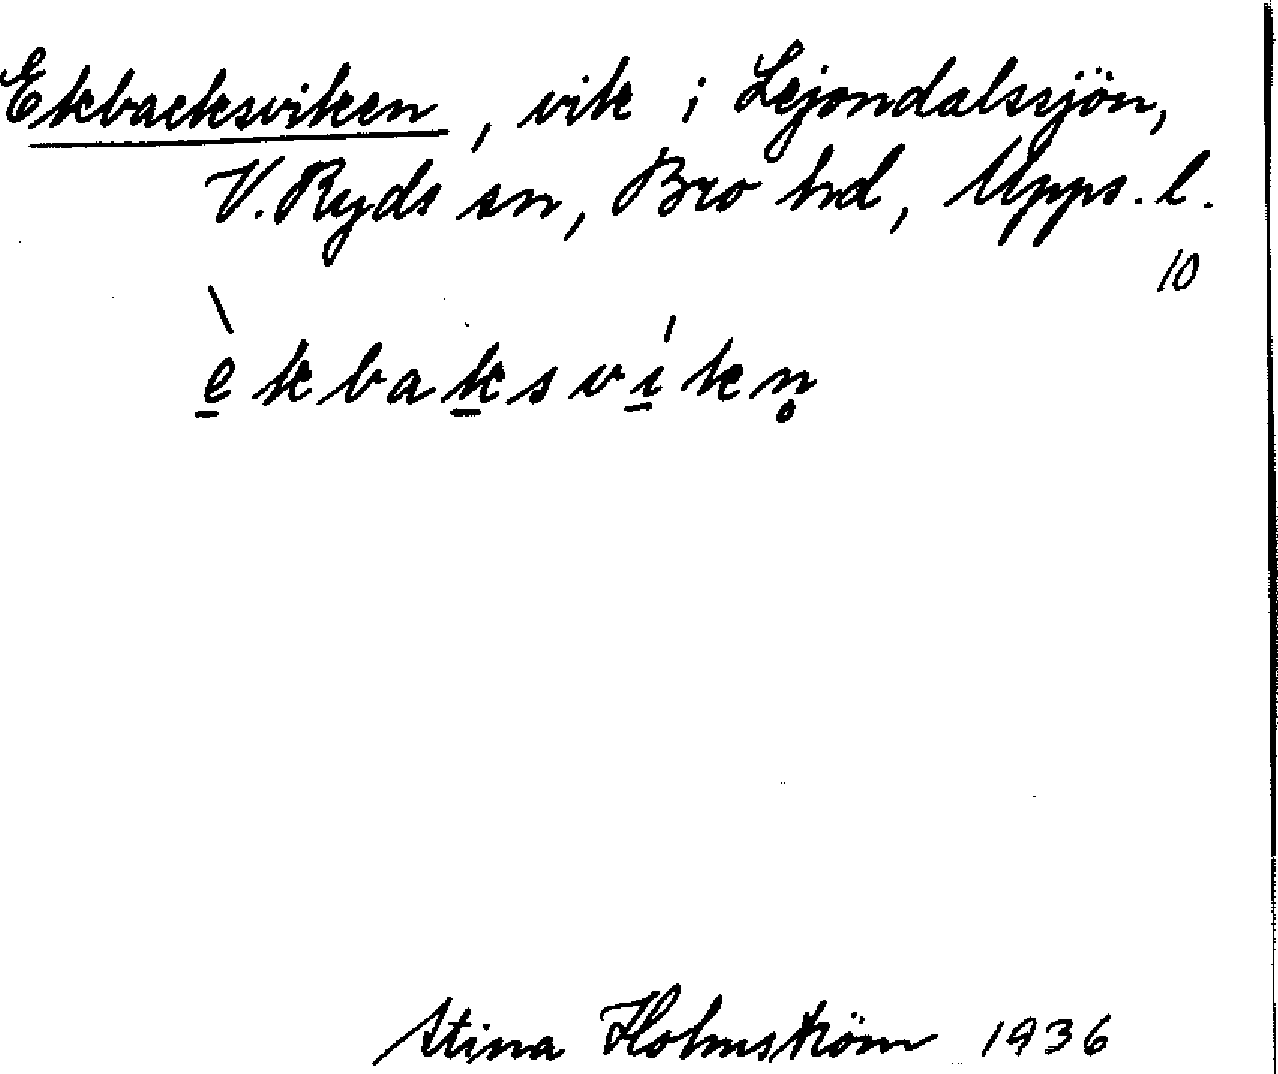 Ekbacksviken, vik i Lejondalssjön,
V. Ryds sn, Bro hd, Upps. l.
10
è̱kbaḵsví̱kn̥
Stina Holmström 1936